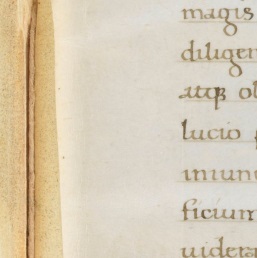 magis
diligen
atqꝫ ob
lucio
iniun
ficium
uidera